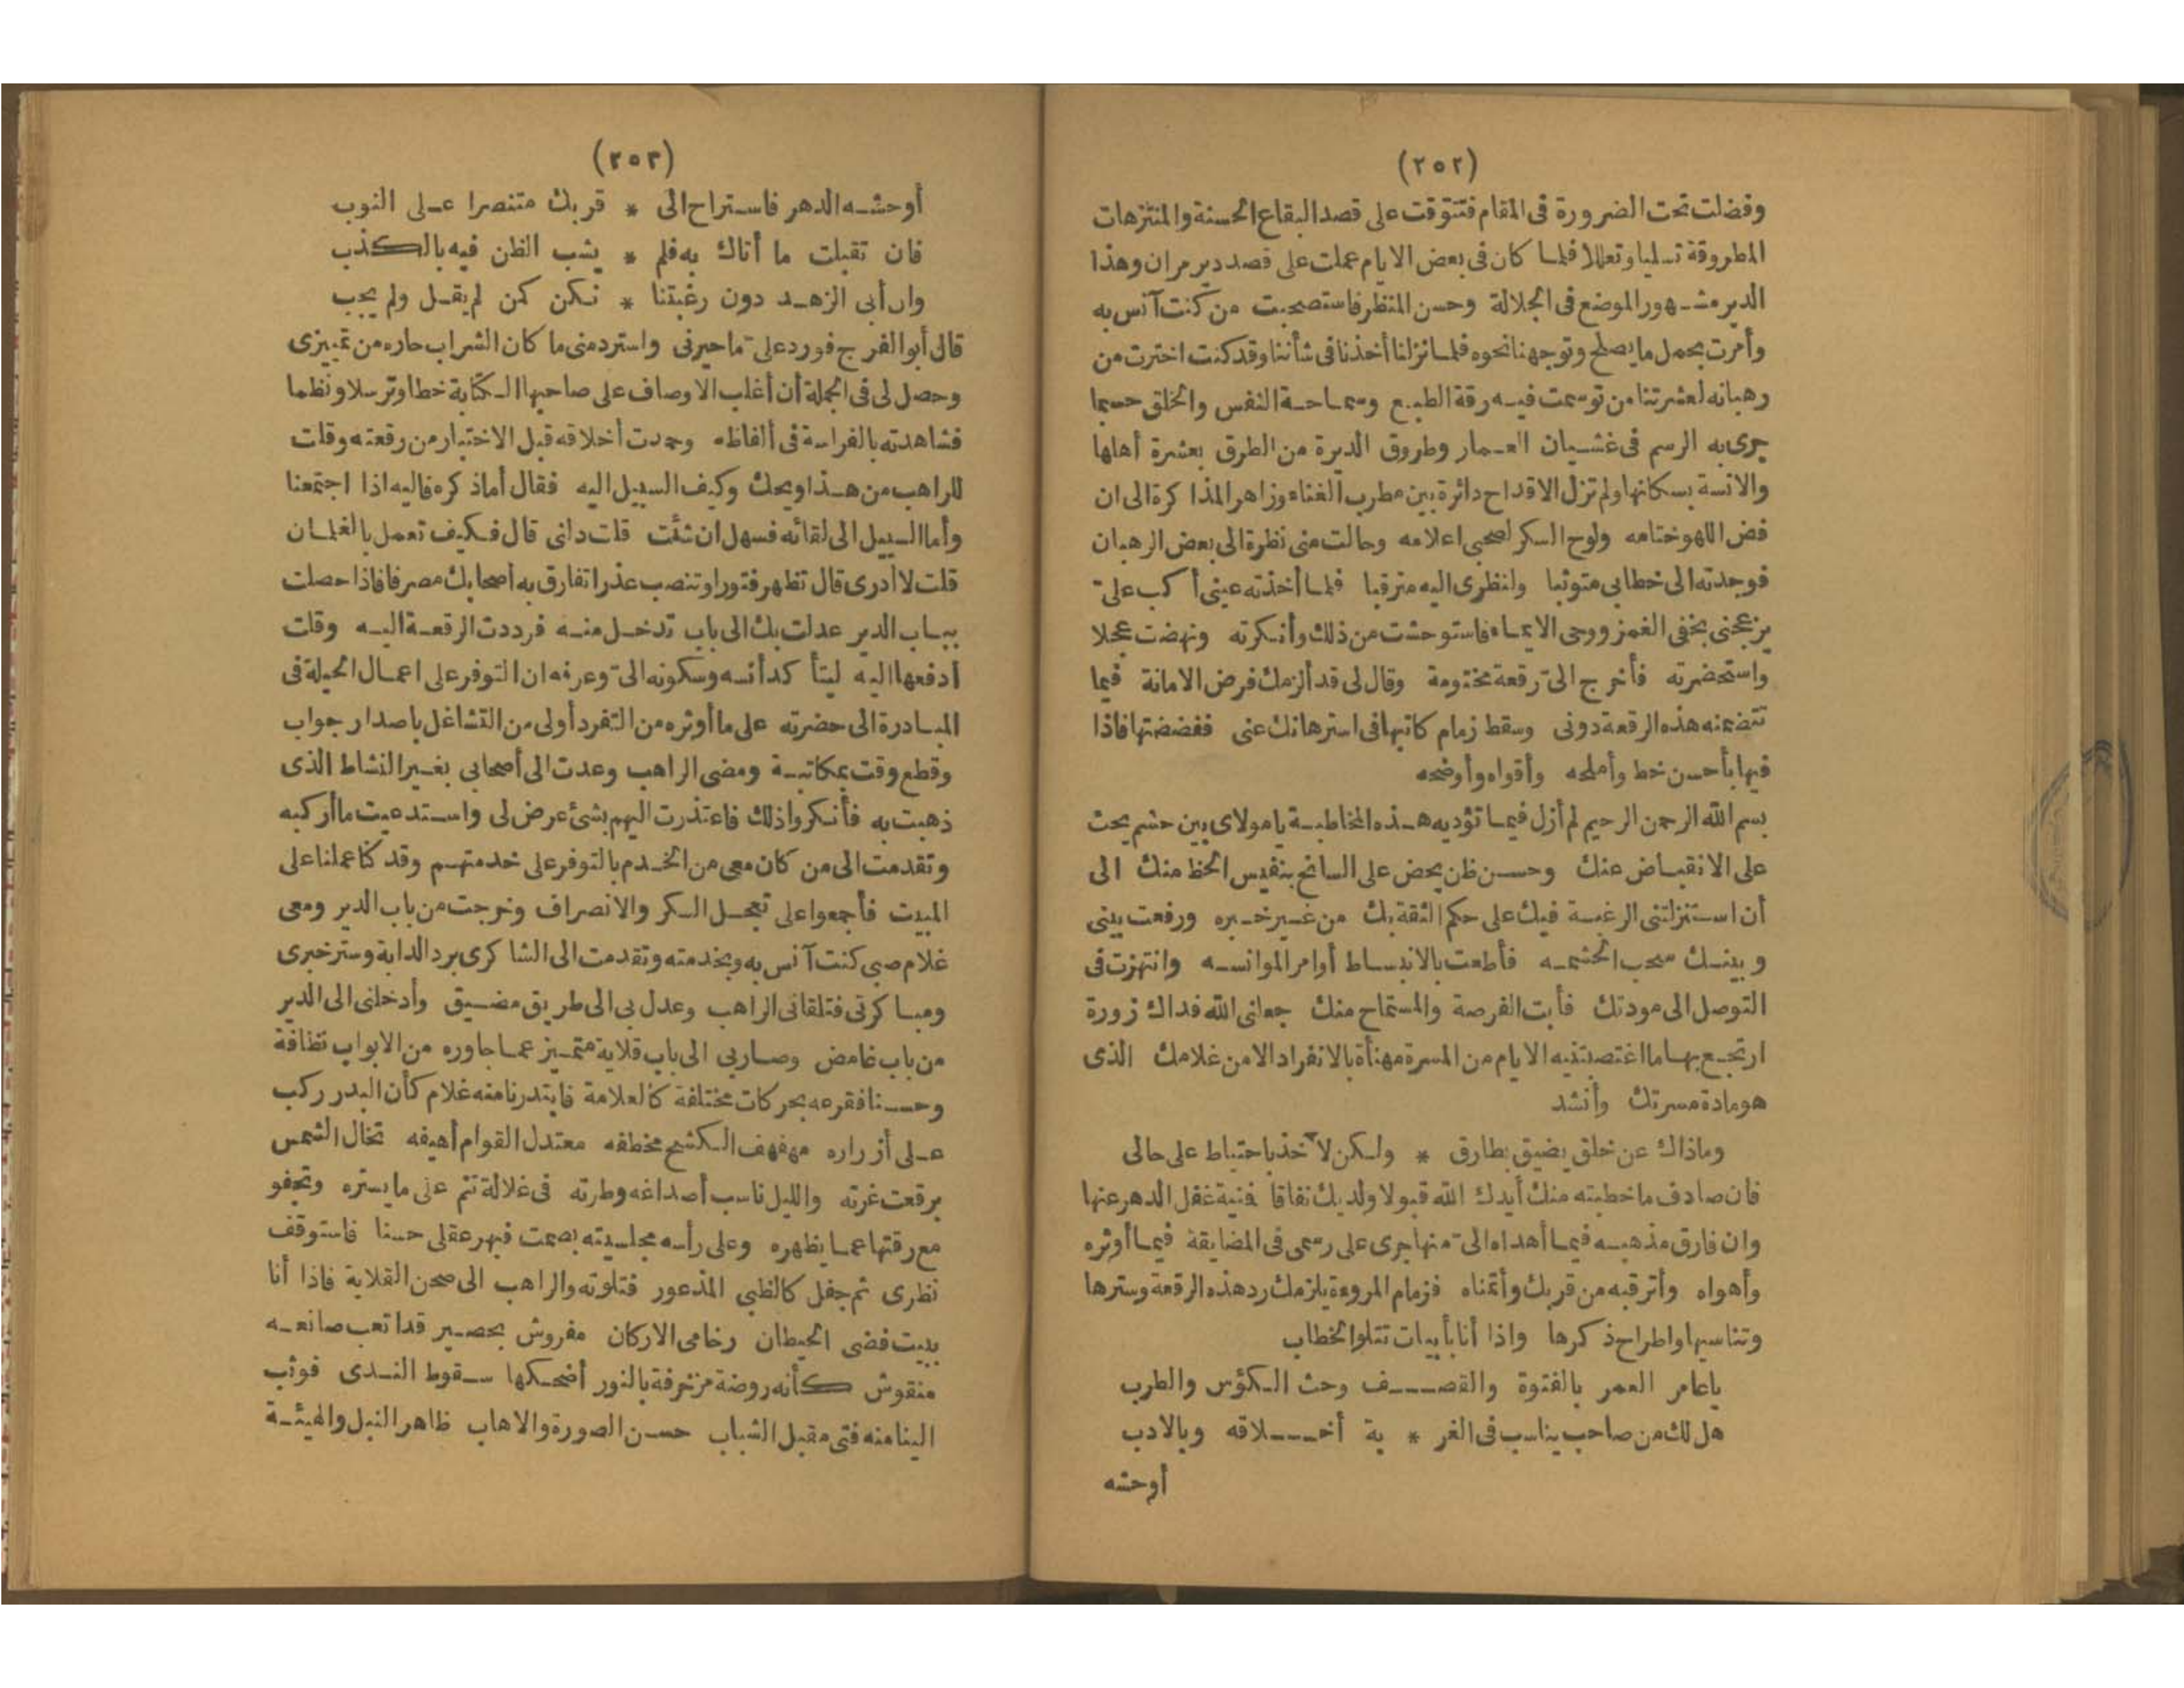 (٢٥٢)
وفضلت تحت الضرورة فى المقام فتتوقت على قصد البقاع الحسنة والمنتزهات
المطروقة تسليا وتعللا فلما كان فى بعض الايام عملت على قصد دير مران وهذا
الدير مشهور الموضع فى الجلالة وحسن المنظر فاستصحبت من كنت آنس به
وأمرت بحمل ما يصلح وتوجهنا نحوه فلما نزلنا أخذنا فى شأننا وقد كنت اخترت من
رهبانه لعشرتنا من توسمت فيه رقة الطبع وسماحة النفس والخلق حسبما
جرى به الرسم فى غشيان العمار وطروق الديرة من الطرق بعشرة أهلها
والانسة بسكانها ولم تزل الاقداح دائرة بين مطرب الغناء وزاهر المذاكرة الى ان
فض اللهو ختامه ولوح السكر لصحبى اعلامه وحالت منى نظرة الى بعض الرهبان
فوجدته الى خطابى متوثبا ولنظرى اليه مترقبا فلما أخذته عينى أكب علىّ
يزعجنى بخفى الغمز ووحى الايماء فاستوحشت من ذلك وأنكرته ونهضت عجلا
واستحضرته فأخرج الىّ رقعة مختومة وقال لى قد ألزمك فرض الامانة فيما
تتضمنه هذه الرقعة دونى وسقط زمام كاتبها فى استرهانك عنى ففضضتها فاذا
فيها بأحسن خط وأملحه وأقواه وأوضحه
بسم الله الرحمن الرحيم لم أزل فيما تؤديه هذه المخاطبة يا مولاى بين حشم يحث
على الانقباض عنك وحسن ظن يحض على السانح بنفيس الحظ منك الى
أن استنزلتنى الرغبة فيك على حكم الثقة بك من غير خبره ورفعت بينى
وبينك سحب الحشمه فأطعت بالانبساط أوامر الموانسه وانتهزت فى
التوصل الى مودتك فأبت الفرصة والمستماح منك جعلنى الله فداك زورة
ارتجع بها ما اغتصبتنيه الايام من المسرة مهنأة بالانفراد الا من غلامك الذى
هو مادة مسرتك وأنشد
وماذاك عن خلق يضيق بطارق * ولكن لآخذ باحتياط على حالى
فان صادف ما خطبته منك أيدك الله قبولا ولديك نفاقا فنية غفل الدهر عنها
وان فارق مذهبه فيما أهداه الىّ منها جرى على رسمى فى المضايقة فيما أوثره
وأهواه وأترقبه من قربك وأتمناه فزمام المروءة يلزمك رد هذه الرقعة وسترها
وتناسيها واطراح ذكرها واذا أنا بأبيات تتلو الخطاب
يا عامر العمر بالفتوة والقصف وحث الكؤس والطرب
هل لك من صاحب يناسب فى الغر * بة أخلاقه وبالادب
أوحشه
(٢٥٣)
أوحشه الدهر فاستراح الى * قربك متنصرا على النوب
فان تقبلت ما أتاك به فلم * يشب الظن فيه بالكذب
وان أبى الزهد دون رغبتنا * نكن كمن لم يقل ولم يجب
قال أبو الفرج فورد علىّ ما حيرنى واسترد منى ما كان الشراب حازه من تمييزى
وحصل لى فى الجملة أن أغلب الاوصاف على صاحبها الكتابة خطا وترسلا ونظما
فشاهدته بالفراسة فى ألفاظه وحمدت أخلاقه قبل الاختبار من رقعته وقلت
للراهب من هذا ويحك وكيف السبيل اليه فقال أماذ كره فاليه اذا اجتمعنا
وأما السبيل الى لقائه فسهل ان شئت قلت دلنى قال فكيف تعمل بالغلمان
قلت لا أدرى قال تظهر فتورا وتنصب عذرا تفارق به أصحابك منصرفا فاذا حصلت
بباب الدير عدلت بك الى باب تدخل منه فرددت الرقعة اليه وقلت
ادفعها اليه ليتأكد أنسه وسكونه الىّ وعرفه ان التوفر على اعمال الحيلة فى
المبادرة الى حضرته على ما أوثره من التفرد أولى من التشاغل باصدار جواب
وقطع وقت بمكاتبة ومضى الراهب وعدت الى أصحابى بغير النشاط الذى
ذهبت به فأنكروا ذلك فاعتذرت اليهم بشئ عرض لى واستدعيت ما أركبه
وتقدمت الى من كان معى من الخدم بالتوفر على خدمتهم وقد كنا عملنا على
المبيت فأجمعوا على تعجل السكر والانصراف وخرجت من باب الدير ومعى
غلام صبى كنت آنس به وبخدمته وتقدمت الى الشاكرى برد الدابة وستر خبرى
ومباكرتى فتلقانى الراهب وعدل بى الى طريق مضيق وأدخلنى الى الدير
من باب غامض وصار بى الى باب قلاية متميز عما جاوره من الابواب نظافة
وحسنا فقرعه بحركات مختلفة كالعلامة فابتدرنا منه غلام كأن البدر ركب
على أزراره مهفهف الكشح مخطفه معتدل القوام أهيفه تخال الشمس
برقعت غرته والليل ناسب أصداغه وطرته فى غلالة تنم على ما يستره وتجفو
مع رقتها عما يظهره وعلى رأسه مجلسيته بصمت فبهر عقلى حسنا فاستوقف
نظرى ثم جفل كالظبى المذعور فتلوته والراهب الى صحن القلاية فاذا أنا
ببيت فضى الحيطان رخامى الاركان مفروش بحصير قد اتعب صانعه
منقوش كأنه روضة مزخرفة بالنور أضحكها سقوط الندى فوثب
الينا منه فتى مقبل الشباب حسن الصورة والاهاب ظاهر النبل والهيئة